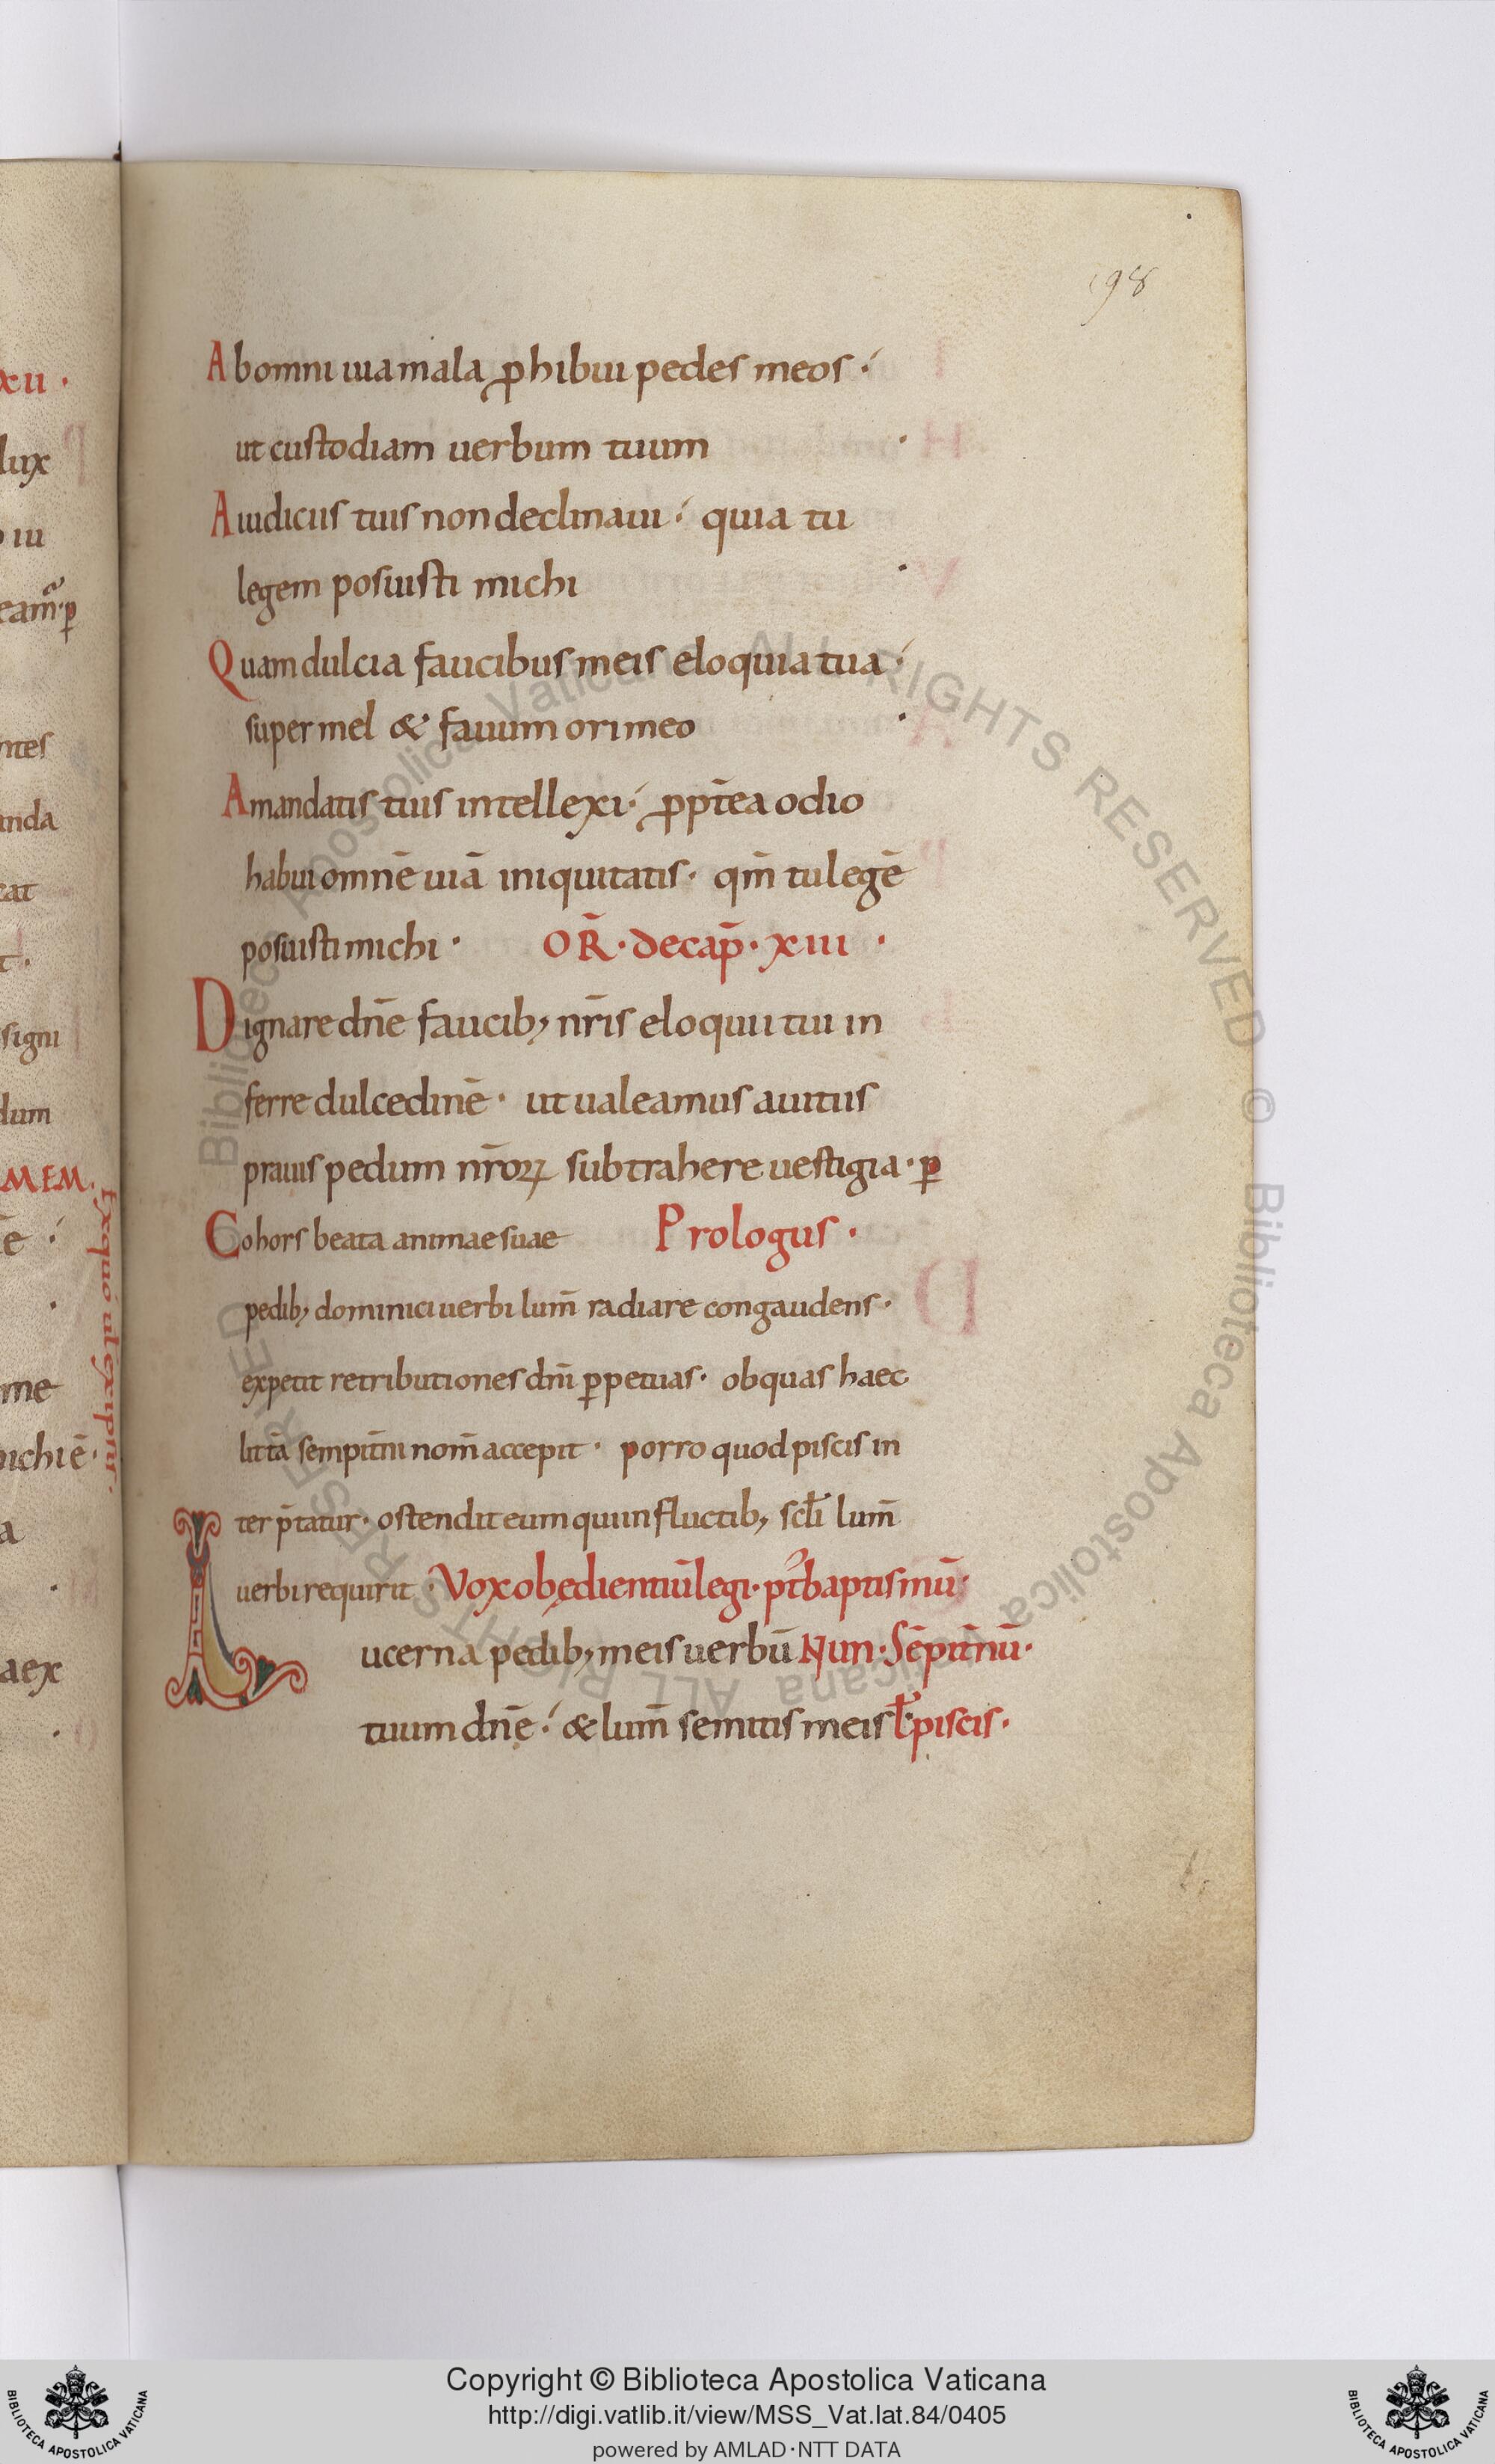 198
Ab omni uia mala ꝓhibui pedes meos·
ut custodiam uerbum tuum ·
A iudiciis tuis non declinaui· quia tu
legem posuisti michi ·
Quam dulcia faucibus meis eloquia tua·
super mel & fauum ori meo ·
A mandatis tuis intellexi· ꝓpt̄ea odio
habui omnē uiā iniquitatis· qm̄ tu legē
posuisti michi · OR̄· de cap̄· xiii ·
Dignare dn̄e faucib; nr̄is eloquii tui in
ferre dulcedinē· ut ualeamus a uitiis
prauis pedum nr̄oꝝ subtrahere uestigia· ꝑ
Cohors beata animae suae Prologus ·
pedib; dominici uerbi lum̄ radiare congaudens·
expetit retributiones dn̄i ꝑpetuas· ob quas haec
litt̄a sempit̄ni nom̄ accepit· porro quod piscis in
terp̄tatur· ostendit eum qui in fluctib; scl̄i lum̄
uerbi requirit · Vox obędientiū legi· pt̄ baptismū·
Lucerna pedib; meis uerbū Nun· Sēpit̄nū·
tuum dn̄e· & lum̄ semitis meis ł piscis·
xii ·
lux
iu
eam̄· ꝑ
ntes
anda
cat
t ·
signi
dum
MEM·
ē ·
me
michi ē·
a
aex
Biblioteca Apostolica Vaticana ALL RIGHTS RESERVED ©
Biblioteca Apostolica Vaticana ALL RIGHTS RESERVED
Copyright © Biblioteca Apostolica Vaticana
http://digi.vatlib.it/view/MSS_Vat.lat.84/0405
powered by AMLAD·NTT DATA
BIBLIOTECA APOSTOLICA VATICANA
BIBLIOTECA APOSTOLICA VATICANA